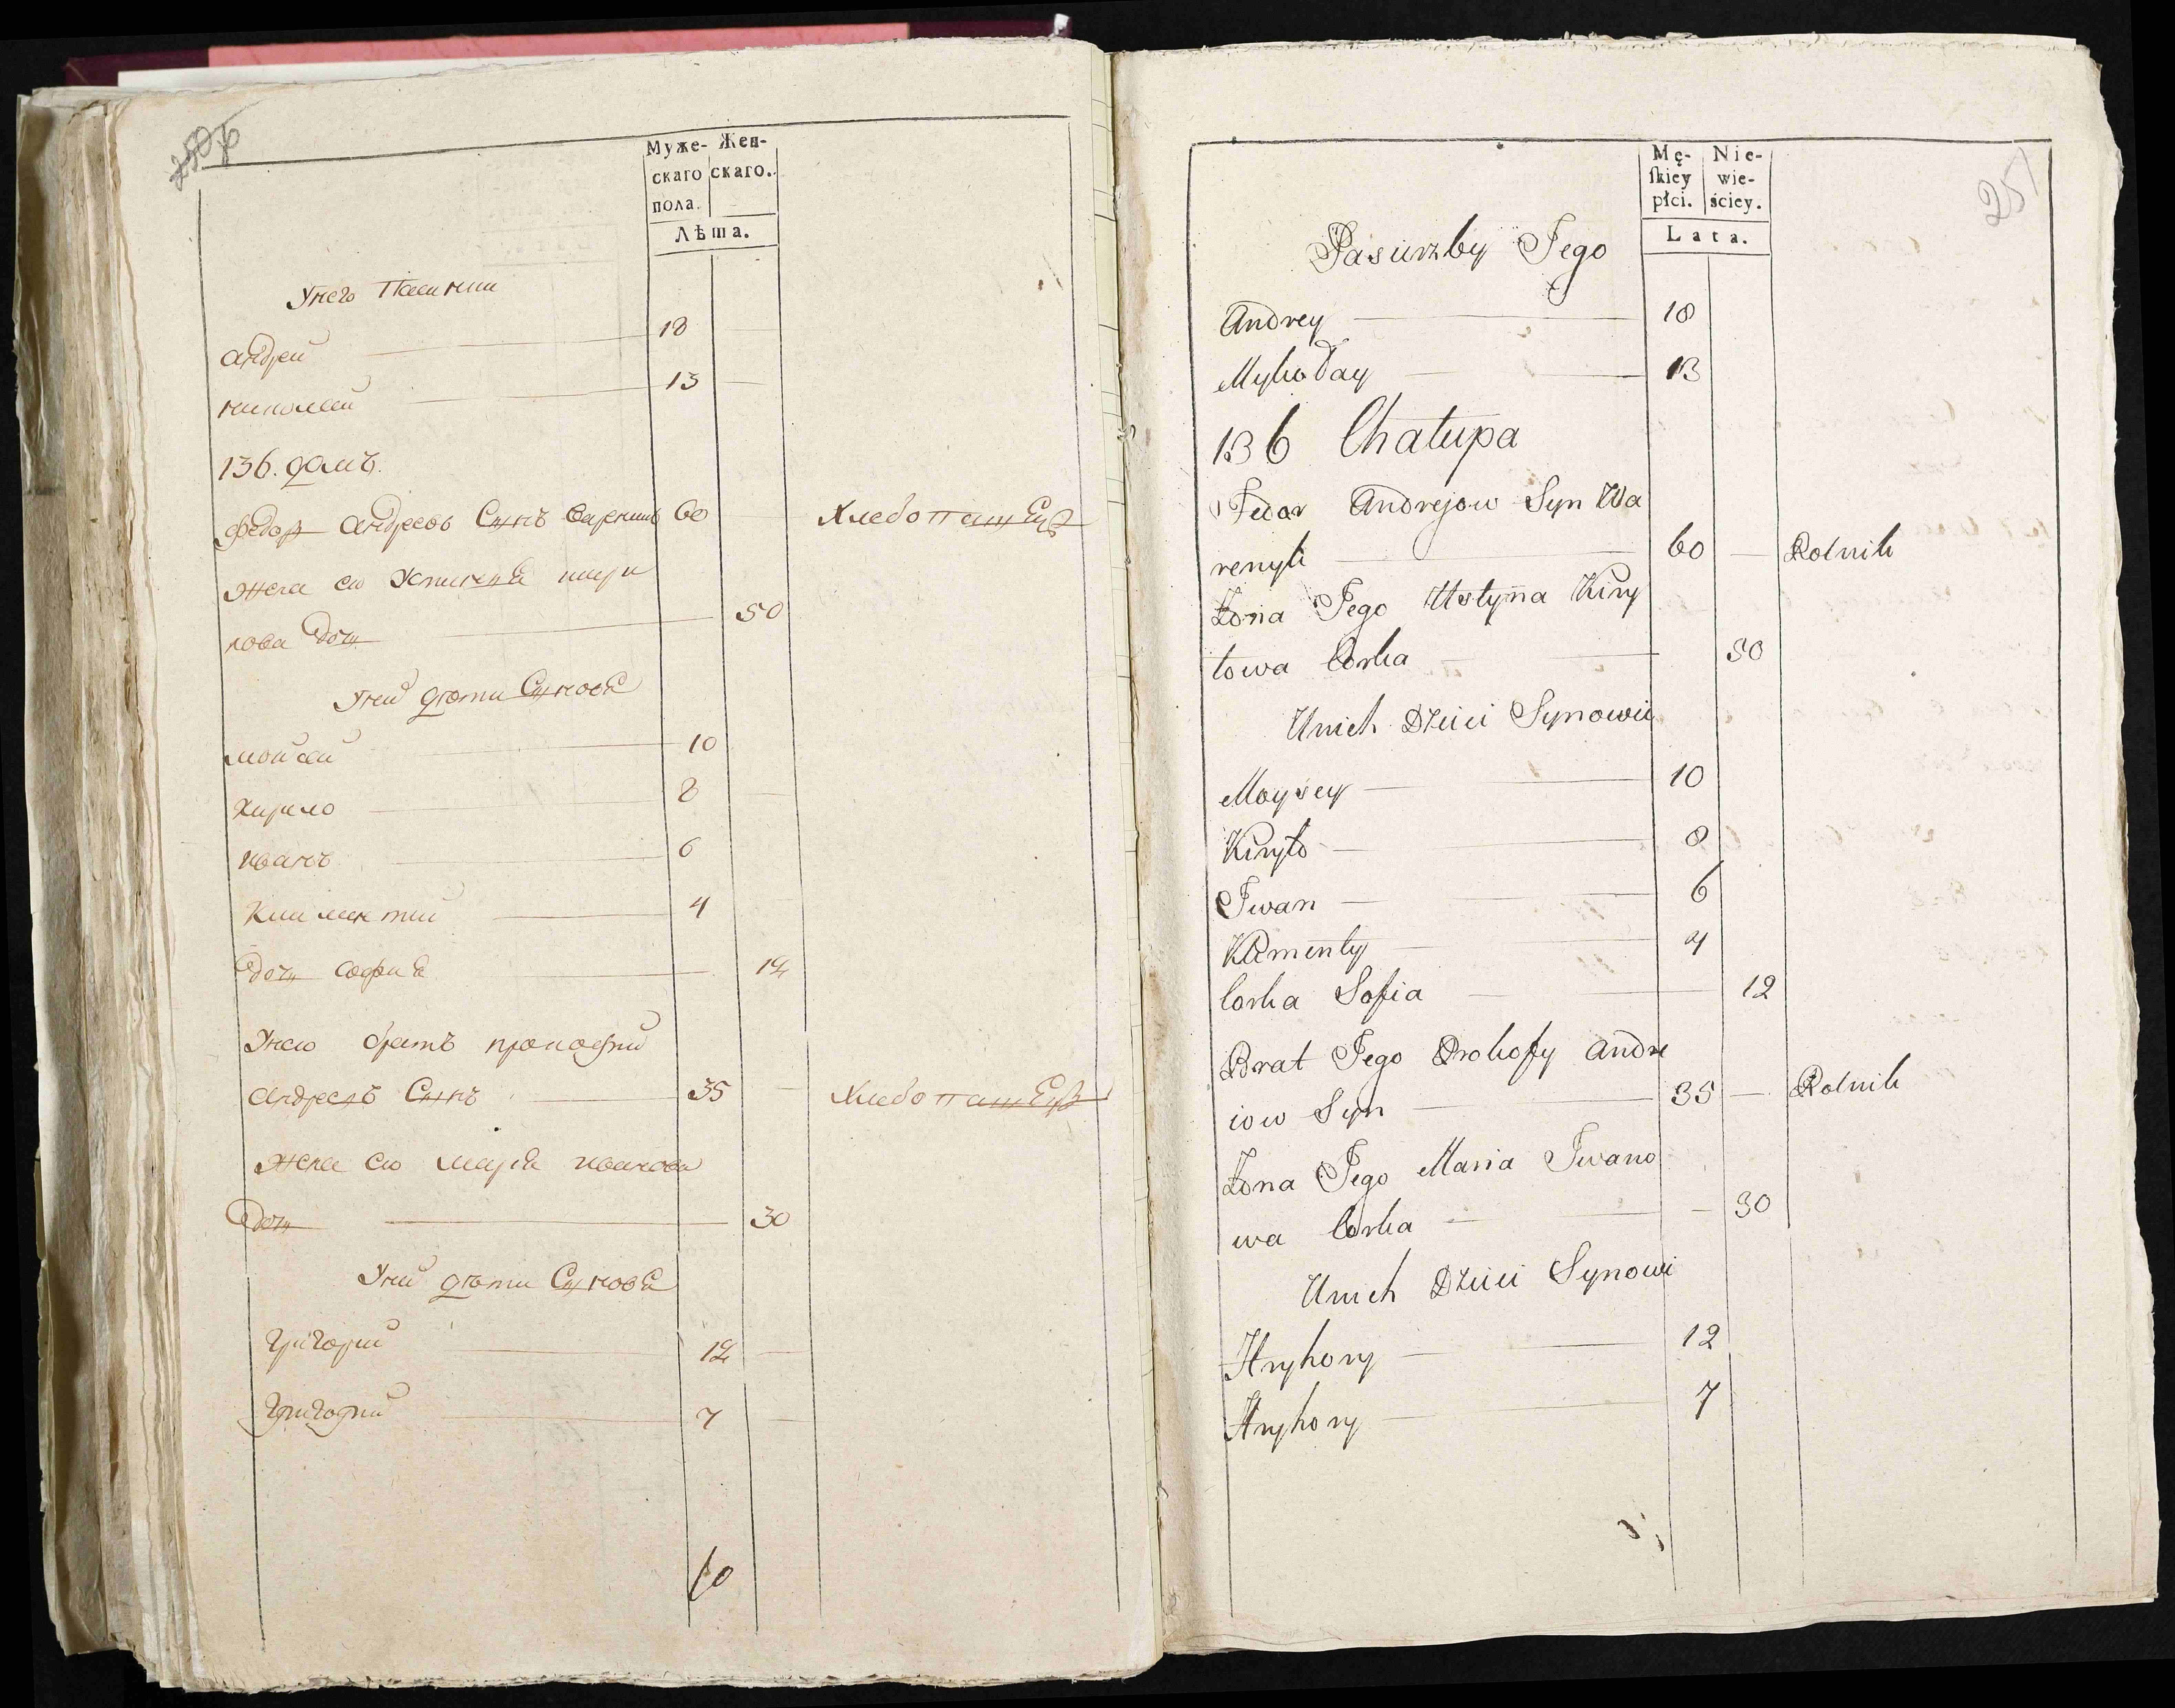 250б
Муже- Жен-
скаго скаго.
пола.
Лѣта.
Унего Пасинки
Андрей 18
николай 13
136. домъ.
Федор Андреевъ Сынъ Вареникъ 60 Хлебопашецъ
жена ево Устиния кири
лова дочь 50
Уних дѣти Синовя
мойсей 10
Кирило 8
иванъ 6
Климентий 4
дочь София 12
Унево братъ прокофий
Андреевъ Сынъ 35 Хлебопашецъ
жена ево мария иванова
дочь 30
Уних дѣти Синовя
Григорий 12
Григорий 7
10
251
Mę- Nie-
ſkiey wie-
płci. ściey.
Lata.
Pasierzby Jego
Andrey 18
Mykołay 13
136 Chałupa
Fedor Andrejow Syn Wa
renyk 60 Rolnik
Żona Jego Ustyna Kiry
łowa Corka 50
Unich Dzieci Synowie
Moysey 10
Kiryło 8
Iwan 6
Klementy 4
Corka Sofia 12
Brat Jego Prokofy Andre
iow Syn 35 Rolnik
Żona Jego Maria Iwano
wa Corka 30
Unich Dzieci Synowi
Hryhory 12
Hryhory 7